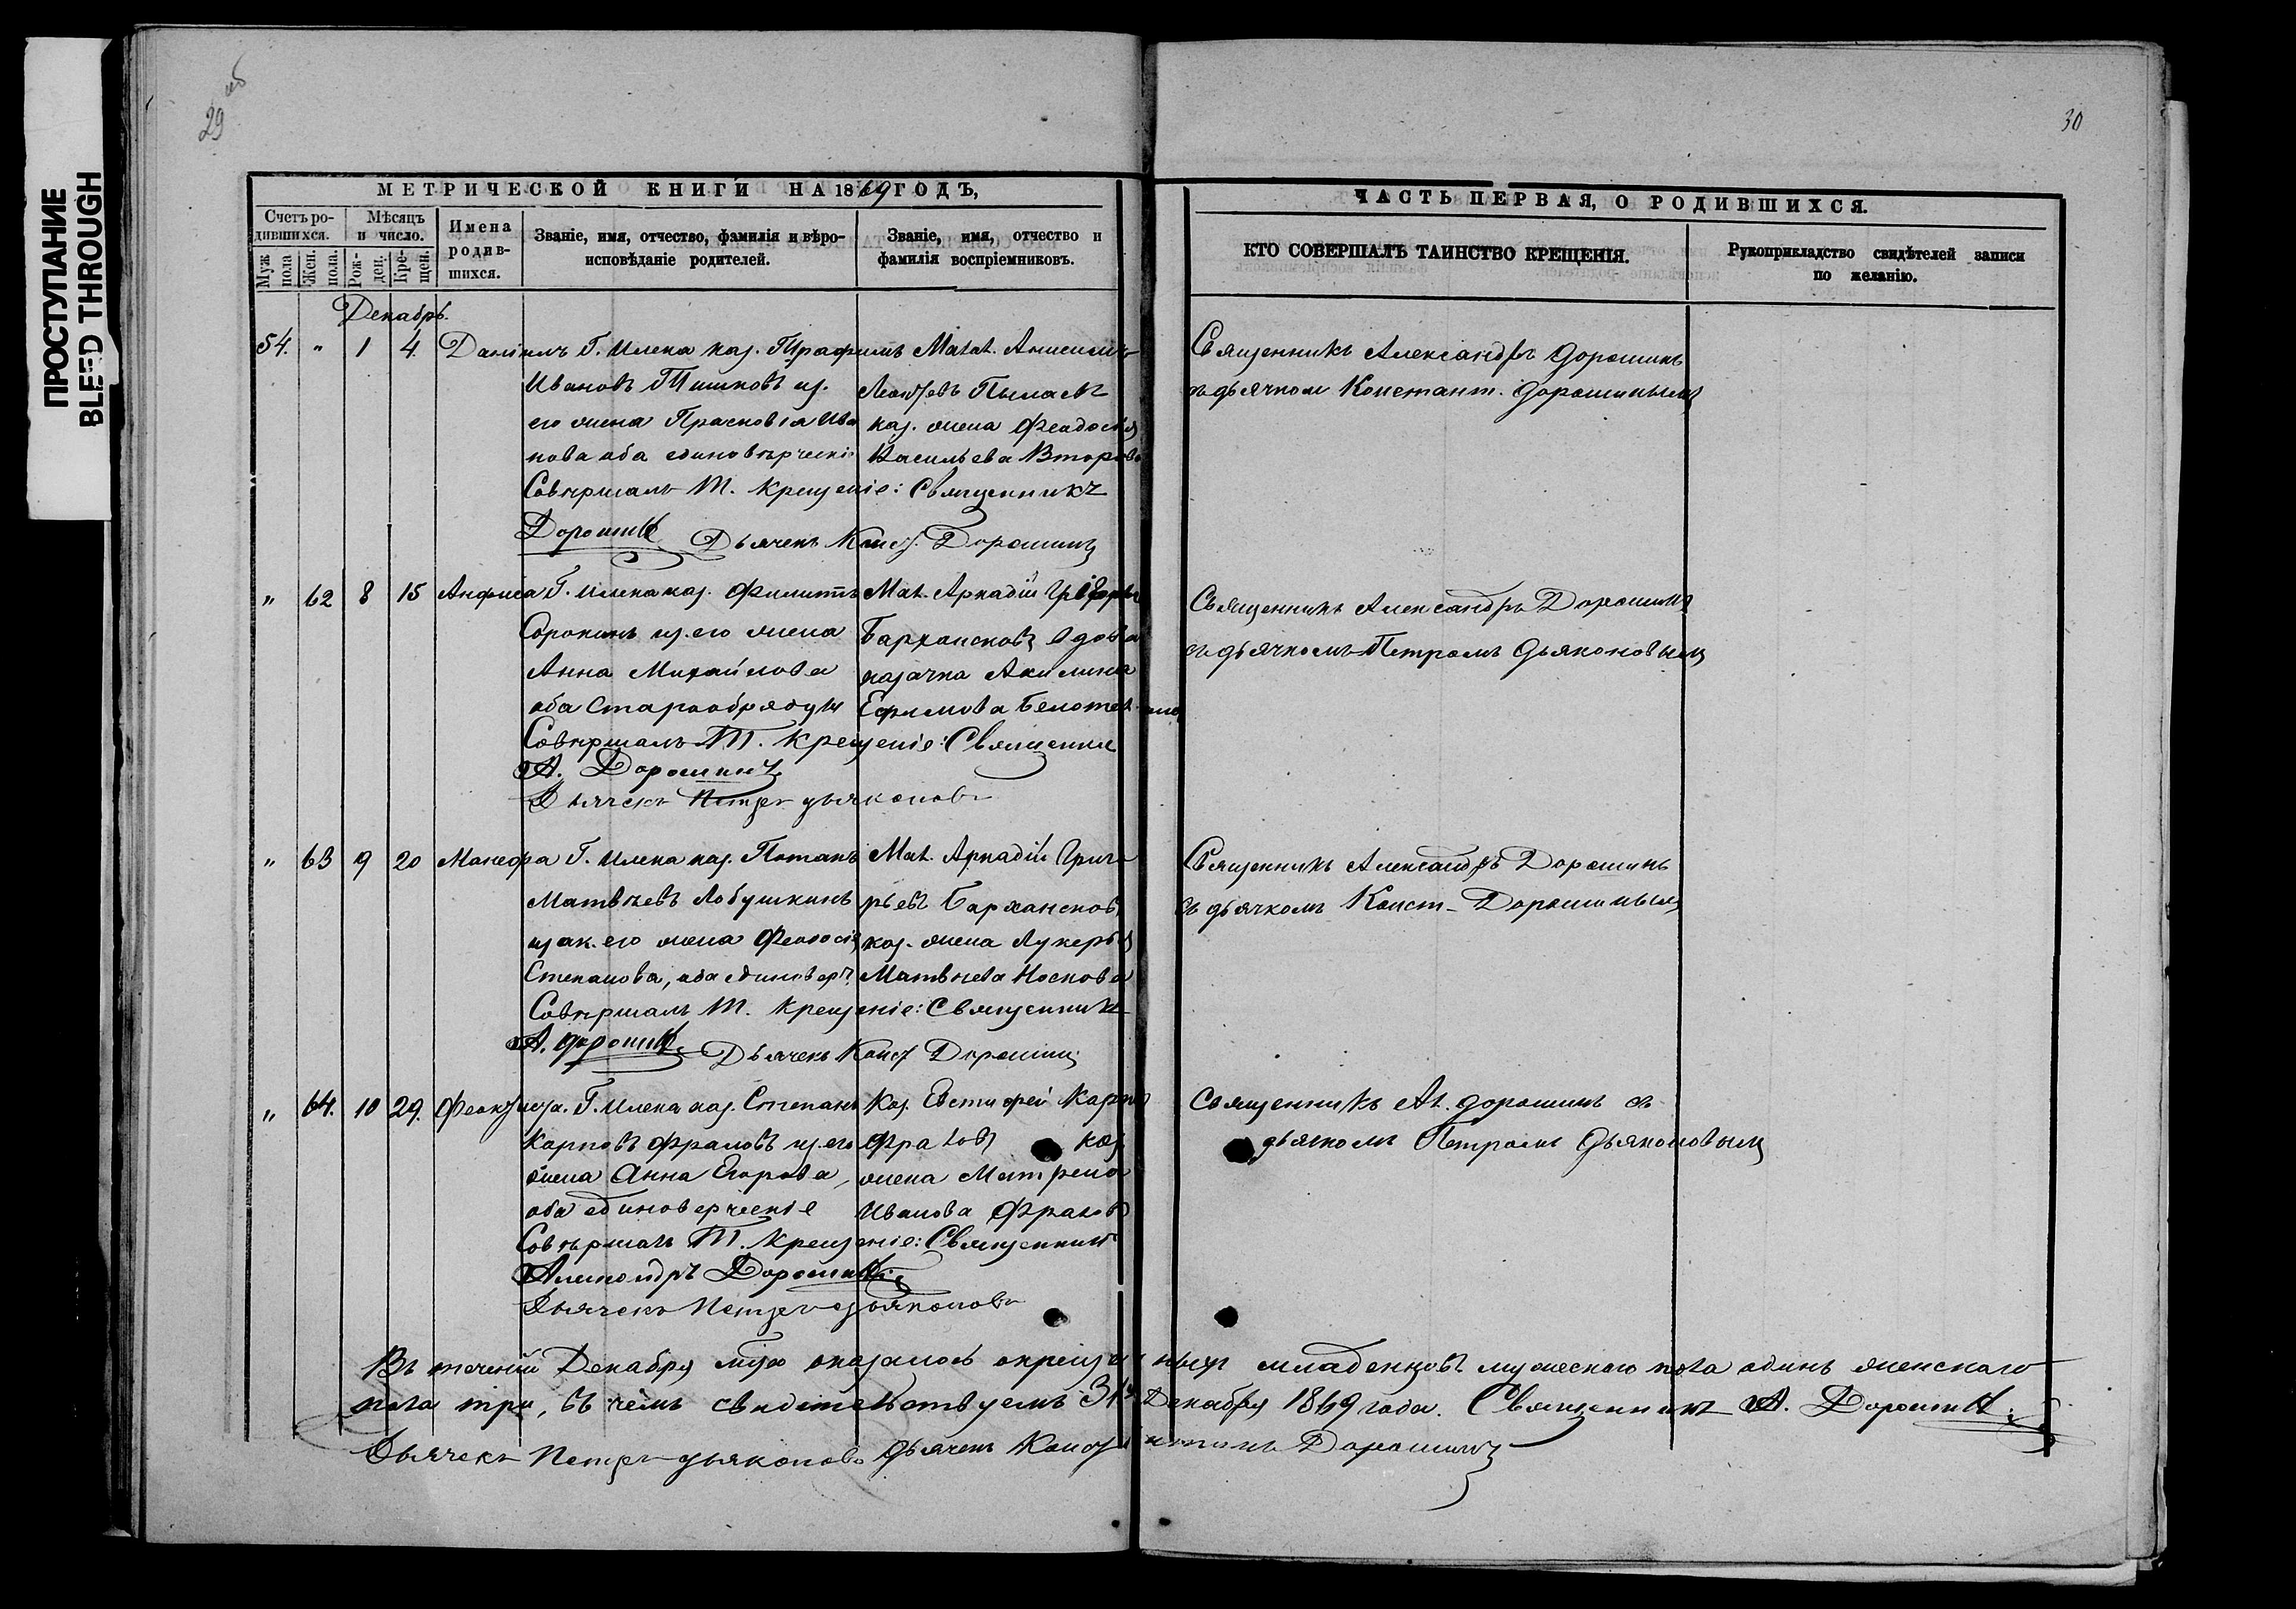 ПРОСТУПАНИЕ
BLEED THROUGH
29 об
30
МЕТРИЧЕСКОЙ КНИГИ НА 1869 ГОДЪ,
ЧАСТЬ ПЕРВАЯ, О РОДИВШИХСЯ.
Счетъ ро-
дившихся.
Мѣсяцъ
и число.
Муж пола
Жен. пола.
Рож-
ден.
Кре-
щен.
Имена
родив-
шихся.
Званіе, имя, отчество, фамилія и вѣро-
исповѣданіе родителей.
Званіе, имя, отчество и
фамилія воспріемниковъ.
КТО СОВЕРШАЛЪ ТАИНСТВО КРЕЩЕНІЯ.
Рукоприкладство свидѣтелей записи
по желанію.
Декабрь.
54. " 1 4. Даніилъ
Г. Илека каз. Трафимъ
Ивановъ Тишковъ из.
его жена Прасковія Ива
нова оба единовѣрческі
Анисимъ
Леонтьевъ
каз. жена Феодосія
Васильева Второва
Совершалъ Т. Крещеніе: Священникъ
Дорошинъ Дьячекъ Конст. Дорошинъ
Священникъ Александръ Дорошинъ
съ дьячкомъ Констант. Дорошинымъ
" 62 8 15 Анфиса
Г. Илека каз. Филиппъ
Сорокинъ из. его жена
Анна Михайлова
оба Старообрядцы
Мал. Аркадій Григорьевъ
Бархансковъ вдова
казачка Акилина
Ефимова
Совершалъ Т. Крещеніе: Священник
А. Дорошинъ
Дьячекъ Петръ Дьяконовъ
Священникъ Александръ Дорошинъ
съ дьячкомъ Петромъ Дьяконовымъ
" 63 9 20 Манефа
Г. Илека каз. Потапъ
Матвѣевъ Лобушкинъ
зак. его жена Феодосія
Степанова, оба единоверч.
Мал. Аркадій Григо
рьевъ Бархансковъ
каз. жена Лукерья
Матвѣева Носкова
Совершалъ Т. Крещеніе: Священникъ
А. Дорошинъ. Дьячекъ Конст Дорошинъ
Священникъ Александръ Дорошинъ
съ дьячкомъ Конст. Дорошинымъ
" 64. 10 29. Феоктиста.
Г. Илека каз. Степанъ
Карповъ Фраловъ из. его
жена Анна Егорова,
оба единоверческіе
Каз. Евстифей Карпов
Фраловъ каз
жена Матрена
Иванова Фралов
Совершалъ Т. Крещеніе: Священник
Александръ Дорошинъ.
Дьячекъ Петръ Дьяконовъ
Священникъ Ал. Дорошинъ съ
дьячкомъ Петромъ Дьяконовымъ
Въ теченіи Декабря мѣсяца оказалось окрещенныхъ младенцовъ мужескаго пола одинъ женскаго
пола три, въ чемъ свидѣтельствуемъ 31го Декабря 1869 года. Священникъ А. Дорошинъ.
Дьячекъ Петръ Дьяконовъ Дьячекъ Константинъ Дорошинъ